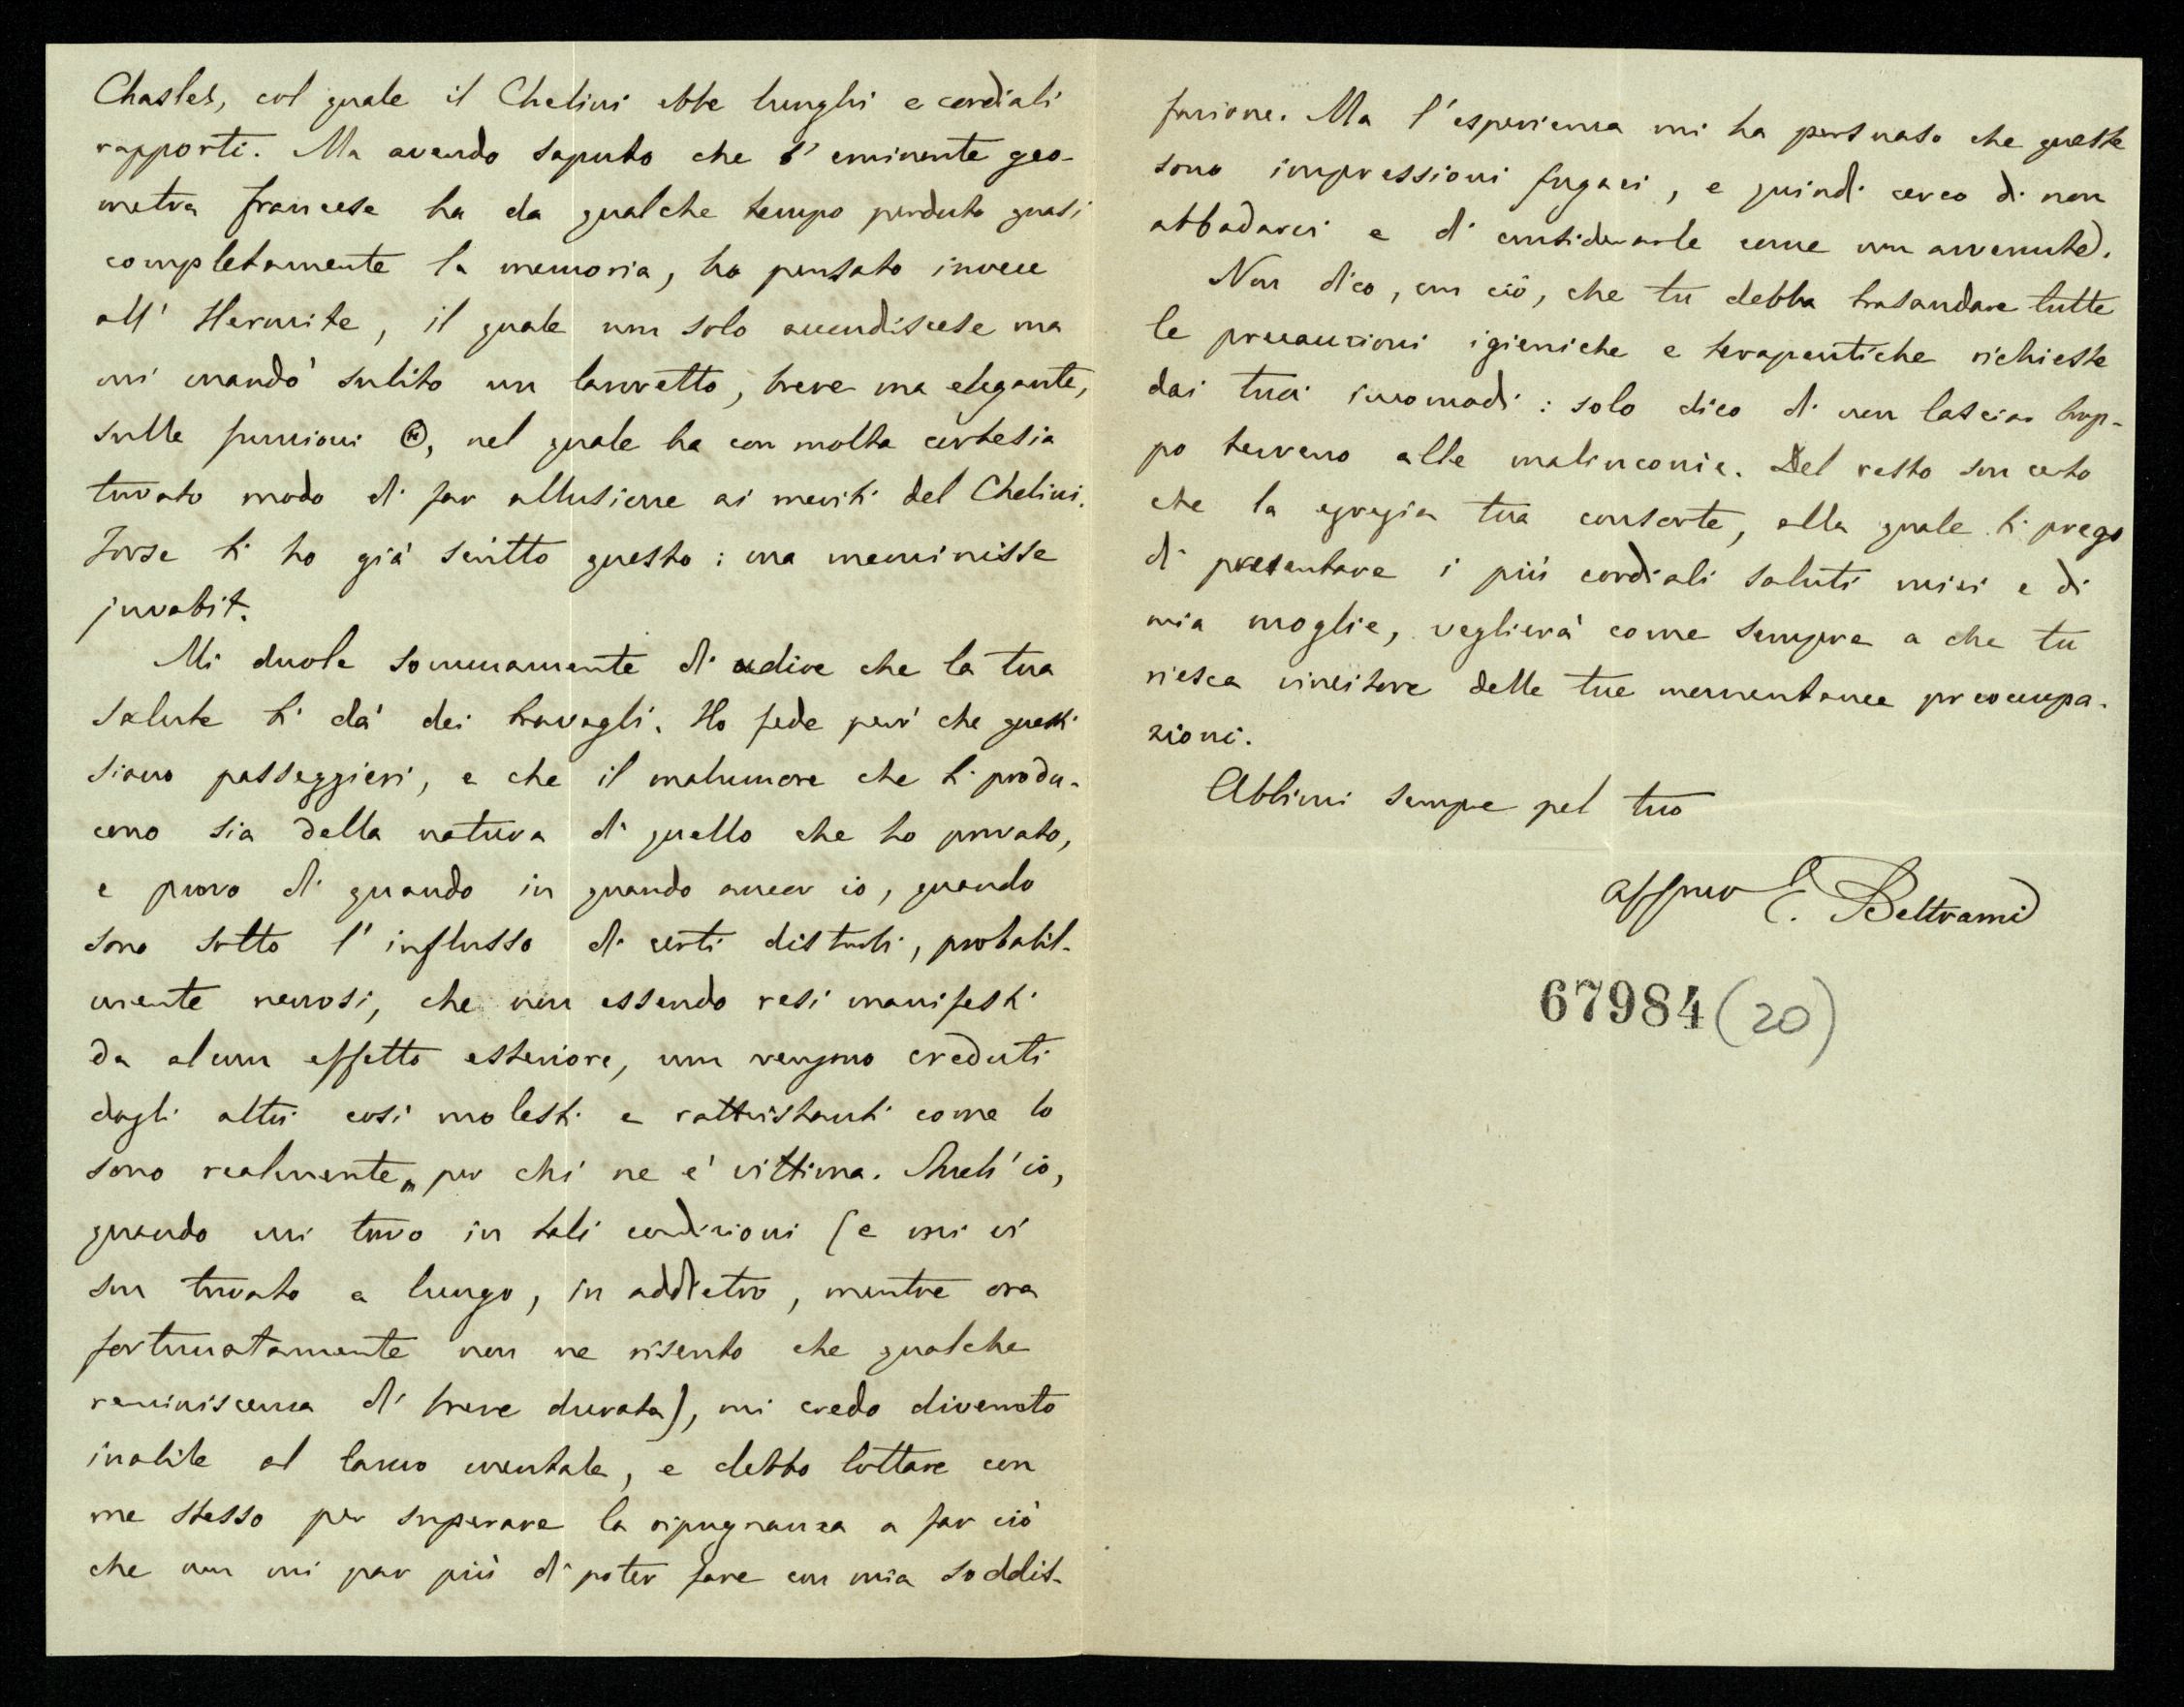 Chasles, col quale il Chelini ebbe lunghi e cordiali
rapporti. Ma avendo saputo che l' eminente geo-
metra francese ha da qualche tempo perduto quasi
completamente la memoria, ho pensato invece
all' Hermite, il quale non solo accondiscese ma
mi mandò subito un lavoretto, breve ma elegante,
sulle funzioni Θ, nel quale ha con molta cortesia
trovato modo di far allusione ai meriti del Chelini.
Forse ti ho già scritto questo: ma meminisse
juvabit.
Mi duole sommamente di udire che la tua
salute ti dà dei travagli. Ho fede però che questi
siano passeggieri, e che il malumore che ti produ-
cono sia della natura di quello che ho provato,
e provo di quando in quando ancor io, quando
sono sotto l' influsso di certi disturbi, probabil-
mente nervosi, che non essendo resi manifesti
da alcun effetto esteriore, non vengono creduti
dagli altri così molesti e rattristanti come lo
sono realmente per chi ne è vittima. Anch' io,
quando mi trovo in tali condizioni (e mi ci
son trovato a lungo, in addietro, mentre ora
fortunatamente non ne risento che qualche
reminiscenza di breve durata), mi credo divenuto
inabile al lavoro mentale, e debbo lottare con
me stesso per superare la ripugnanza a far ciò
che non mi par più di poter fare con mia soddis-
fazione. Ma l' esperienza mi ha persuaso che queste
sono impressioni fugaci, e quindi cerco di non
abbadarci e di considerarle come non avvenute.
Non dico, con ciò, che tu debba trasandare tutte
le precauzioni igieniche e terapeutiche richieste
dai tuoi incomodi: solo dico di non lasciar trop-
po terreno alle malinconie. Del resto son certo
che la egregia tua consorte, alla quale ti prego
di presentare i più cordiali saluti miei e di
mia moglie, veglierà come sempre a che tu
riesca vincitore delle tue momentanee preoccupa-
zioni.
Abbimi sempre pel tuo
affmo E. Beltrami
67984 (20)